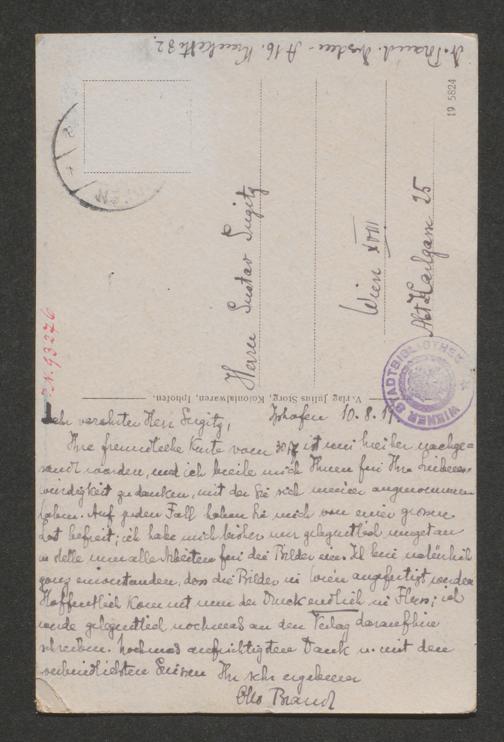 Dr. Brand. Dresden-A 16.
19 5824
Herrn Gustav Gugitz
Wien XVIII
Alst Karlgasse 25
WIENER STADTBIBLIOTHEK
Verlag Julius Storg, Kolonialwaren, Iphofen.
Iphofen 10. 8. 19
Sehr verehrter Herr Gugitz,
Ihre freundliche Karte vom 30/7 ist mir hierher nachge=
sandt worden, und ich beeile mich Ihnen für Ihre Liebens=
würdigkeit zu danken, mit der Sie sich meiner angenommen
haben. Auf jeden Fall haben Sie mich von einer grossen
Last befreit; ich habe mich bisher nur gelegentlich umgetan
für die Bilder ein. Ich bin natürlich
ganz einverstanden, dass die Bilder in Wien angefertigt werden
Hoffentlich kommt nun der Druck endlich in Fluss; ich
werde gelegentlich nochmals an den Verlag daraufhin
schreiben. Nochmals aufrichtigsten Dank u. mit den
verbindlichsten Grüssen Ihr sehr ergebener
Otto Brand